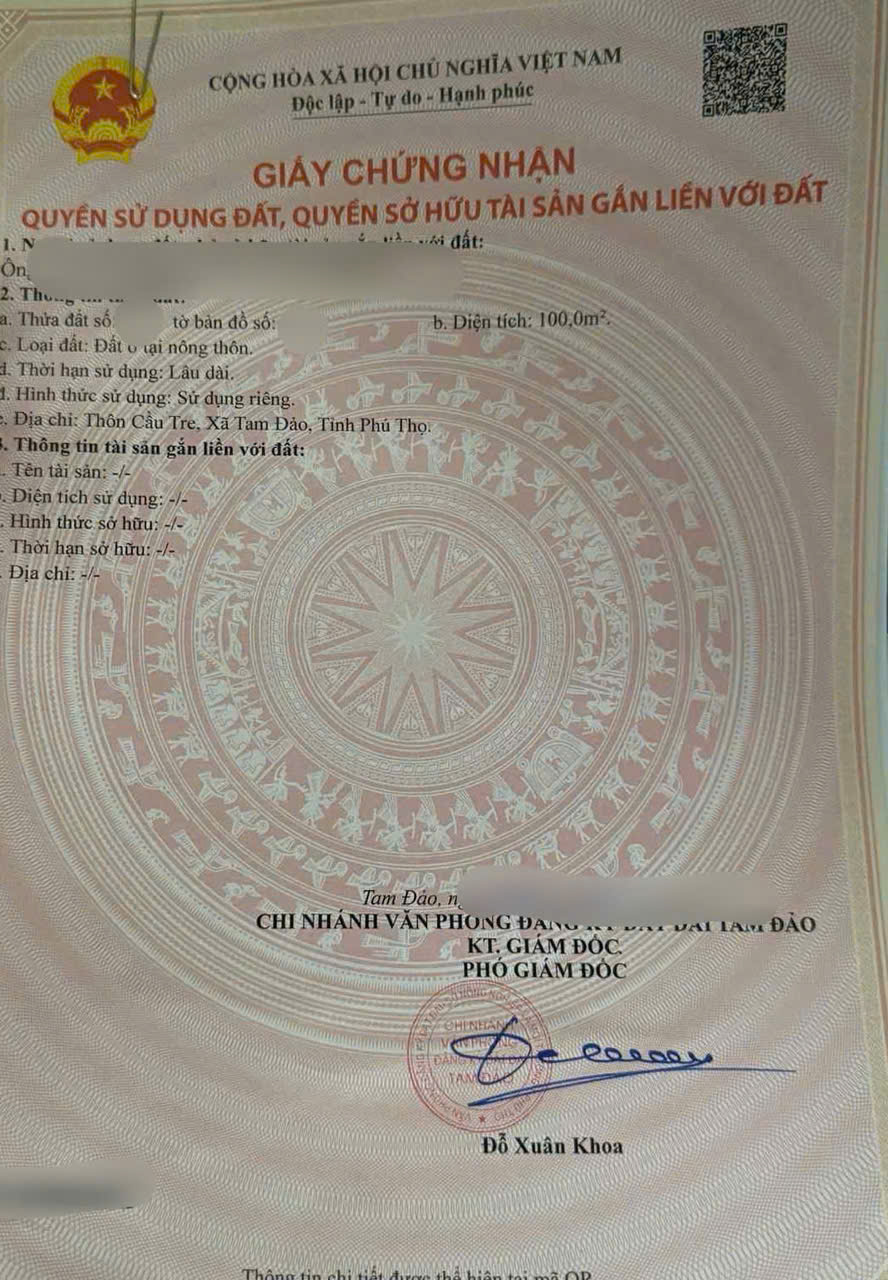 CỘNG HÒA XÃ HỘI CHỦ NGHĨA VIỆT NAM
Độc lập - Tự do - Hạnh phúc
GIẤY CHỨNG NHẬN
QUYỀN SỬ DỤNG ĐẤT, QUYỀN SỞ HỮU TÀI SẢN GẮN LIỀN VỚI ĐẤT
1. với đất:
2.
a. Thửa đất số: tờ bản đồ số: b. Diện tích: 100,0m².
c. Loại đất: Đất ở tại nông thôn.
d. Thời hạn sử dụng: Lâu dài.
đ. Hình thức sử dụng: Sử dụng riêng.
e. Địa chỉ: Thôn Cầu Tre, Xã Tam Đảo, Tỉnh Phú Thọ.
3. Thông tin tài sản gắn liền với đất:
. Tên tài sản: -/-
. Diện tích sử dụng: -/-
. Hình thức sở hữu: -/-
. Thời hạn sở hữu: -/-
. Địa chỉ: -/-
Tam Đảo,
CHI NHÁNH VĂN PHÒNG ĐĂNG KÝ ĐẤT ĐAI TAM ĐẢO
KT. GIÁM ĐỐC.
PHÓ GIÁM ĐỐC
CHI NHÁNH
VĂN PHÒNG
TAM ĐẢO
Đỗ Xuân Khoa
Thông tin chi tiết được thể hiện tại mã QR